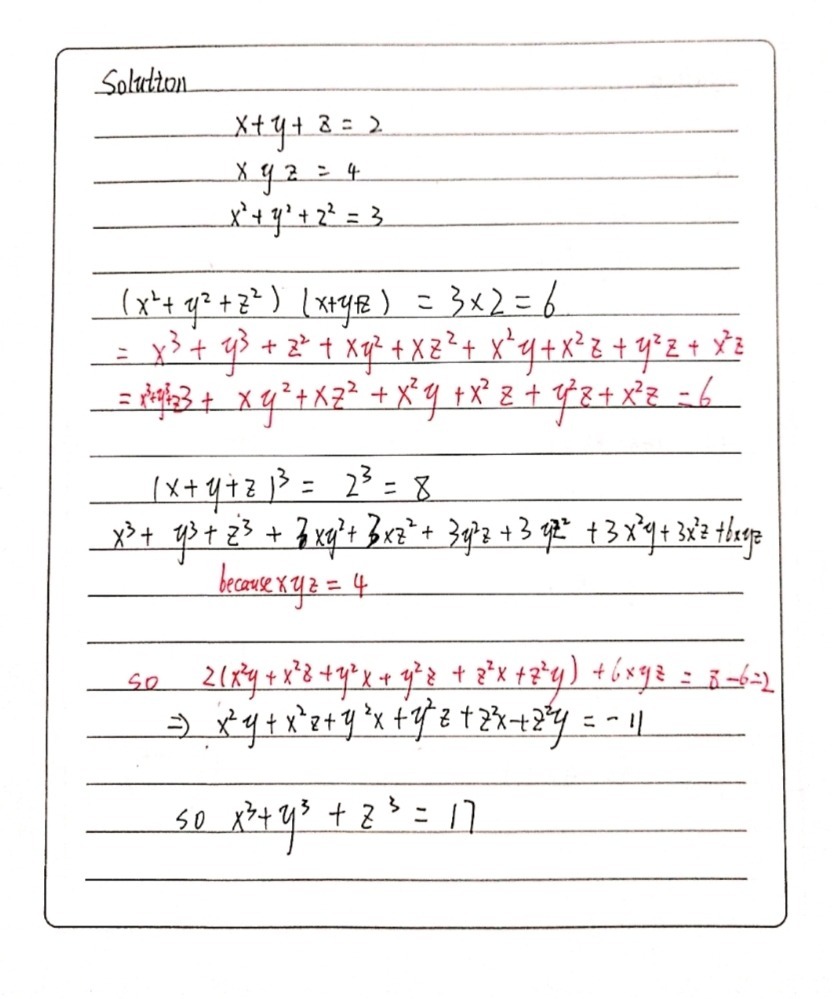 Solution
x+y+z=2
xyz=4
x²+y²+z²=3
(x²+y²+z²)(x+y+z)=3×2=6
=x³+y³+z²+xy²+xz²+x²y+x²z+y²z+x²z
=x³+y³+z3+xy²+xz²+x²y+x²z+y²z+x²z=6
(x+y+z)³=2³=8
x³+y³+z³+3xy²+3xz²+3y²z+3yz²+3x²y+3x²z+6xyz
because xyz=4
so 2(x²y+x²z+y²x+y²z+z²x+z²y)+6xyz=8-6=2
⇒x²y+x²z+y²x+y²z+z²x+z²y=-11
so x³+y³+z³=17